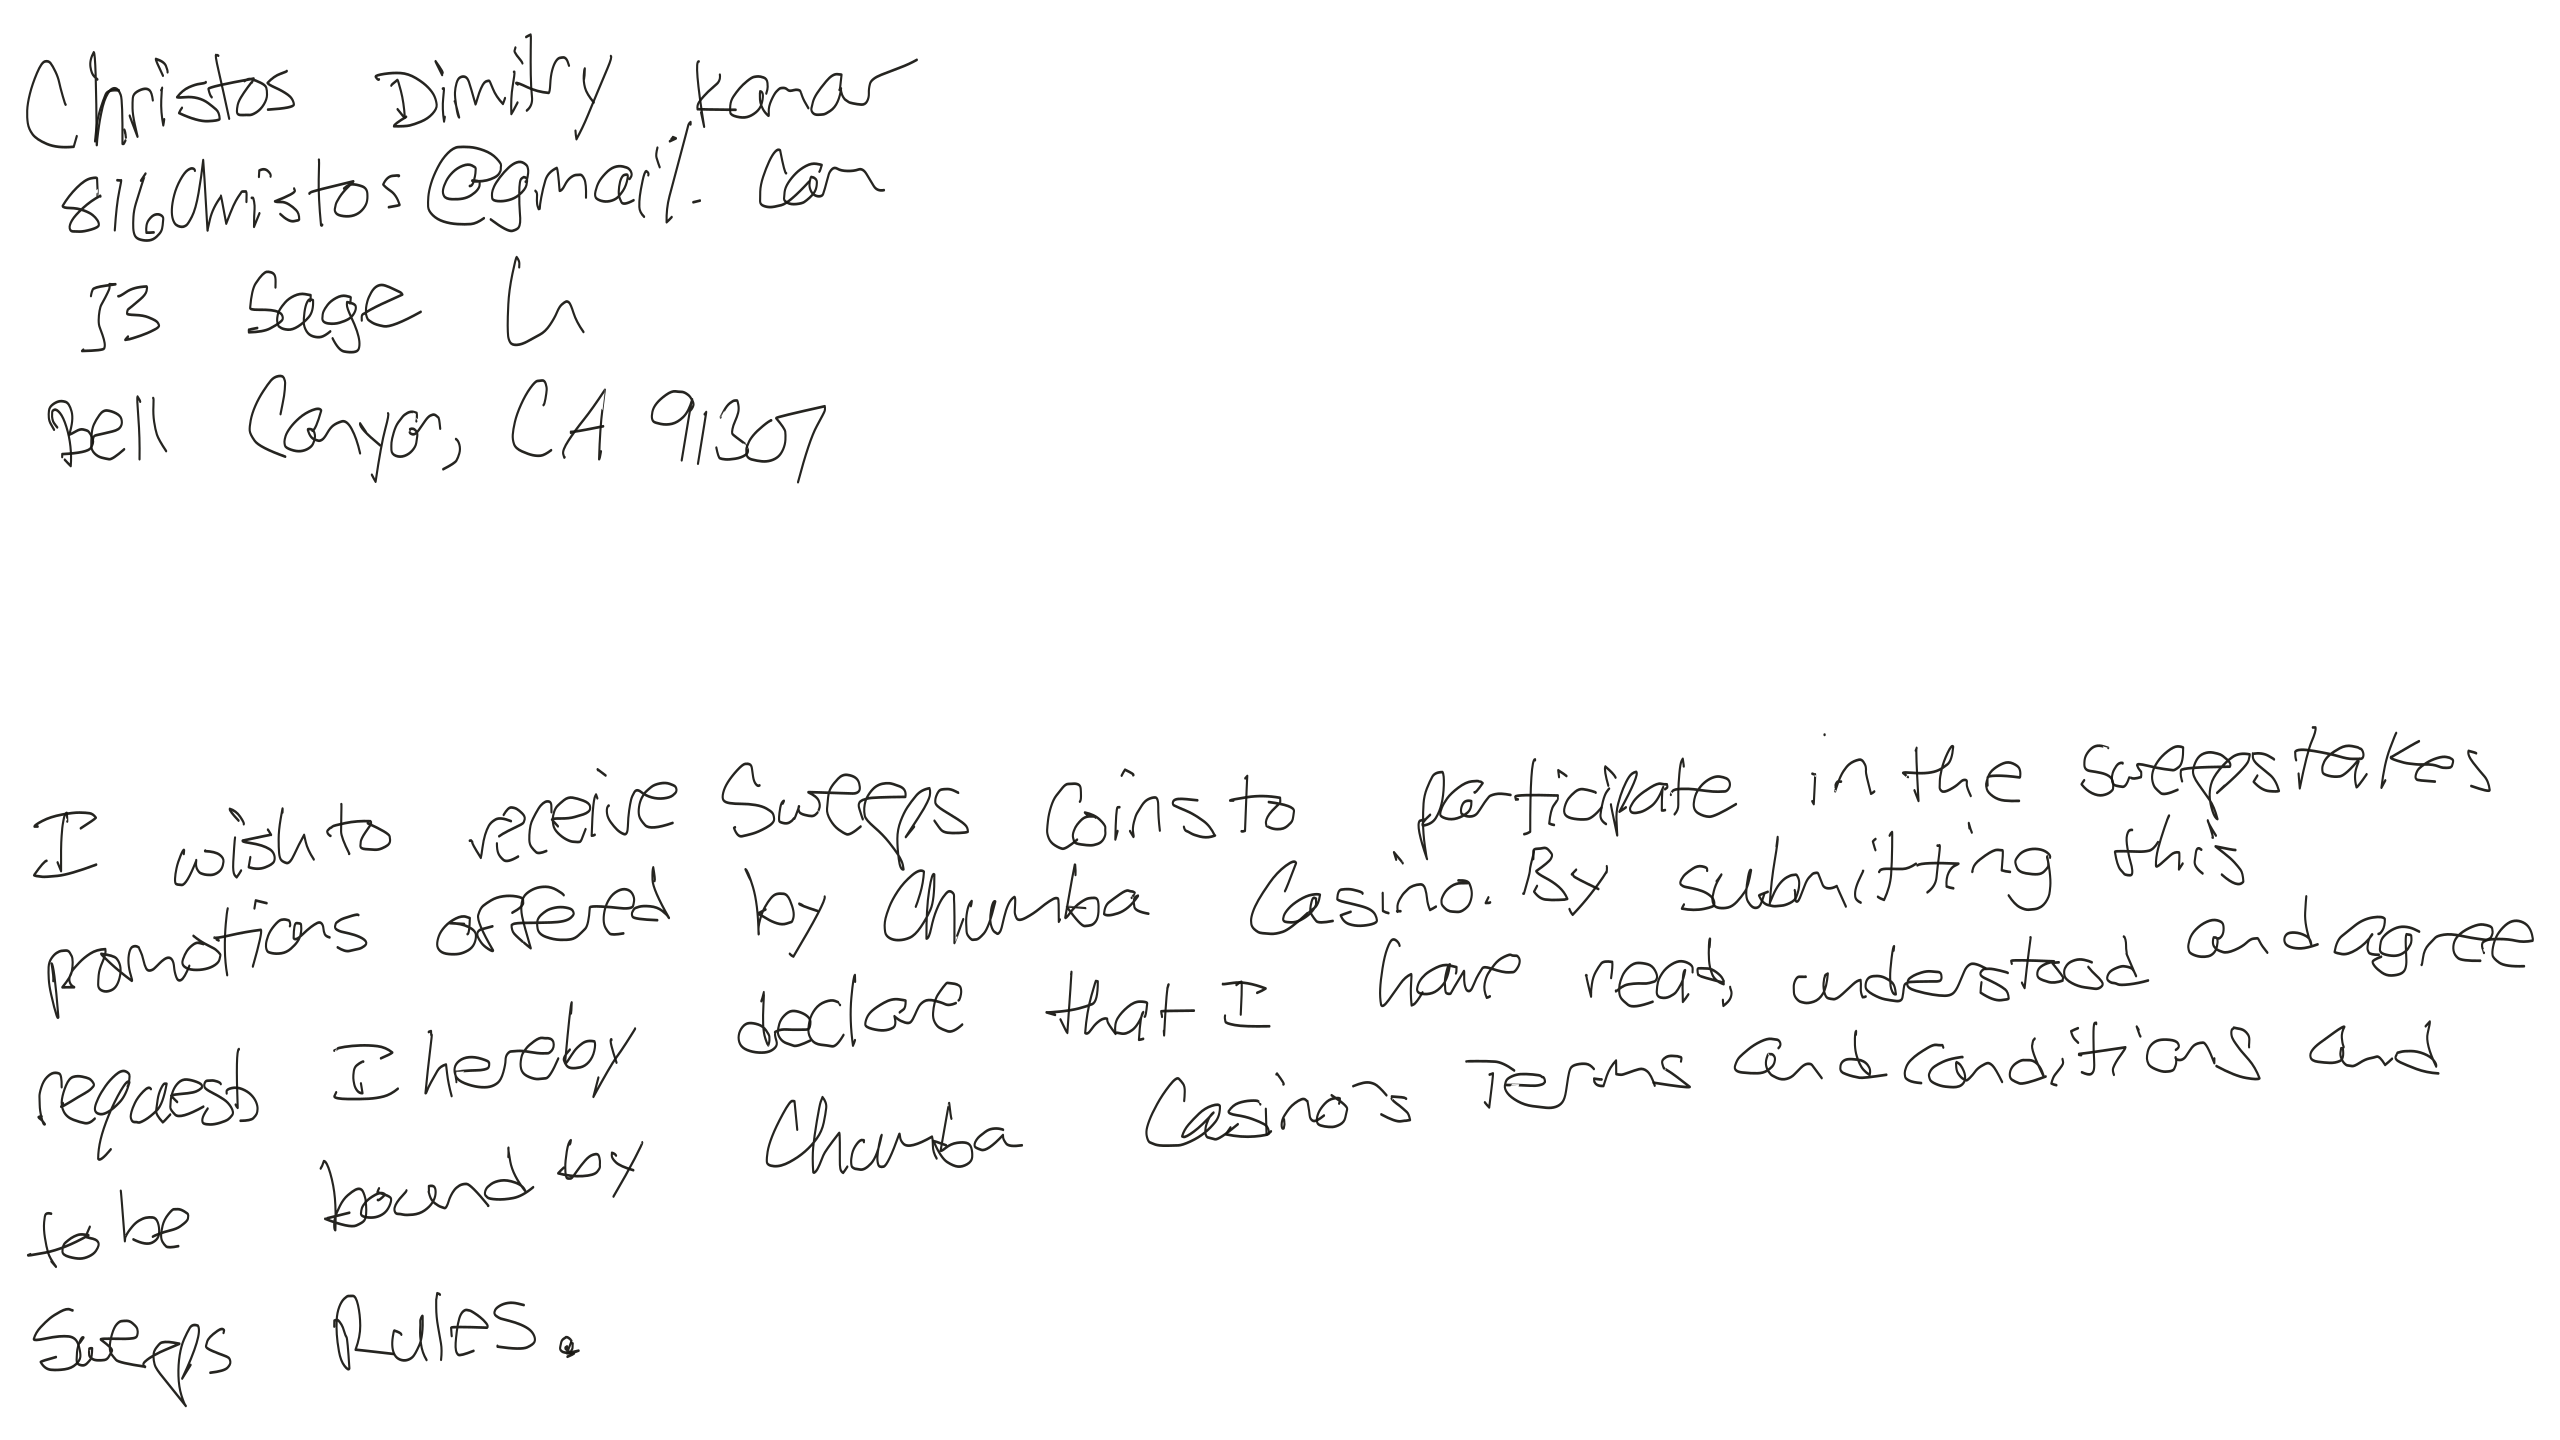 Christos Dimitry Kanar
816Christos@gmail.com
13 Sage Ln
Bell Canyon, CA 91307
I wish to receive Sweeps Coins to participate in the sweepstakes
promotions offered by Chumba Casino. By submitting this
request I hereby declare that I have read, understood and agree
to be bound by Chumba Casino's Terms and conditions and
Sweeps Rules.